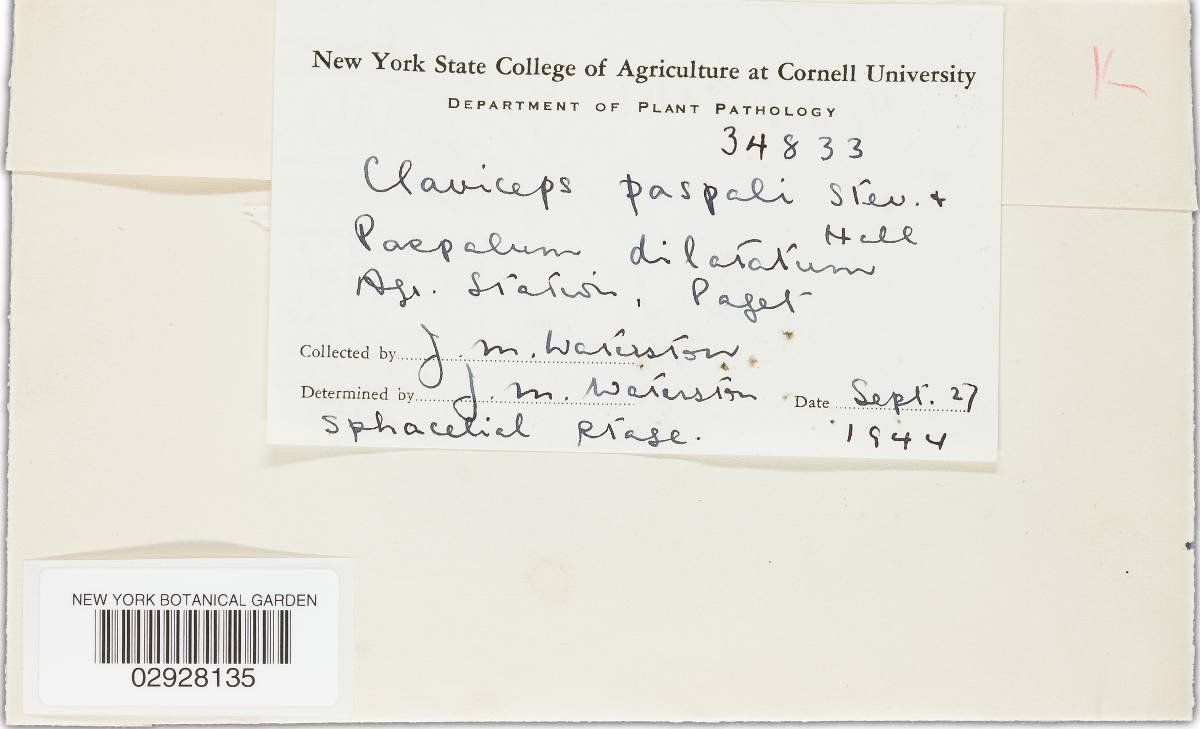 New York State College of Agriculture at Cornell University
DEPARTMENT OF PLANT PATHOLOGY
34833
Claviceps paspali Stev. +
Hall
Paspalum dilatatum
Agr. Station, Paget
Collected by J. M. Waterston
Determined by J. M. Waterston Date Sept. 27
Sphacelial stage. 1944
K
NEW YORK BOTANICAL GARDEN
02928135